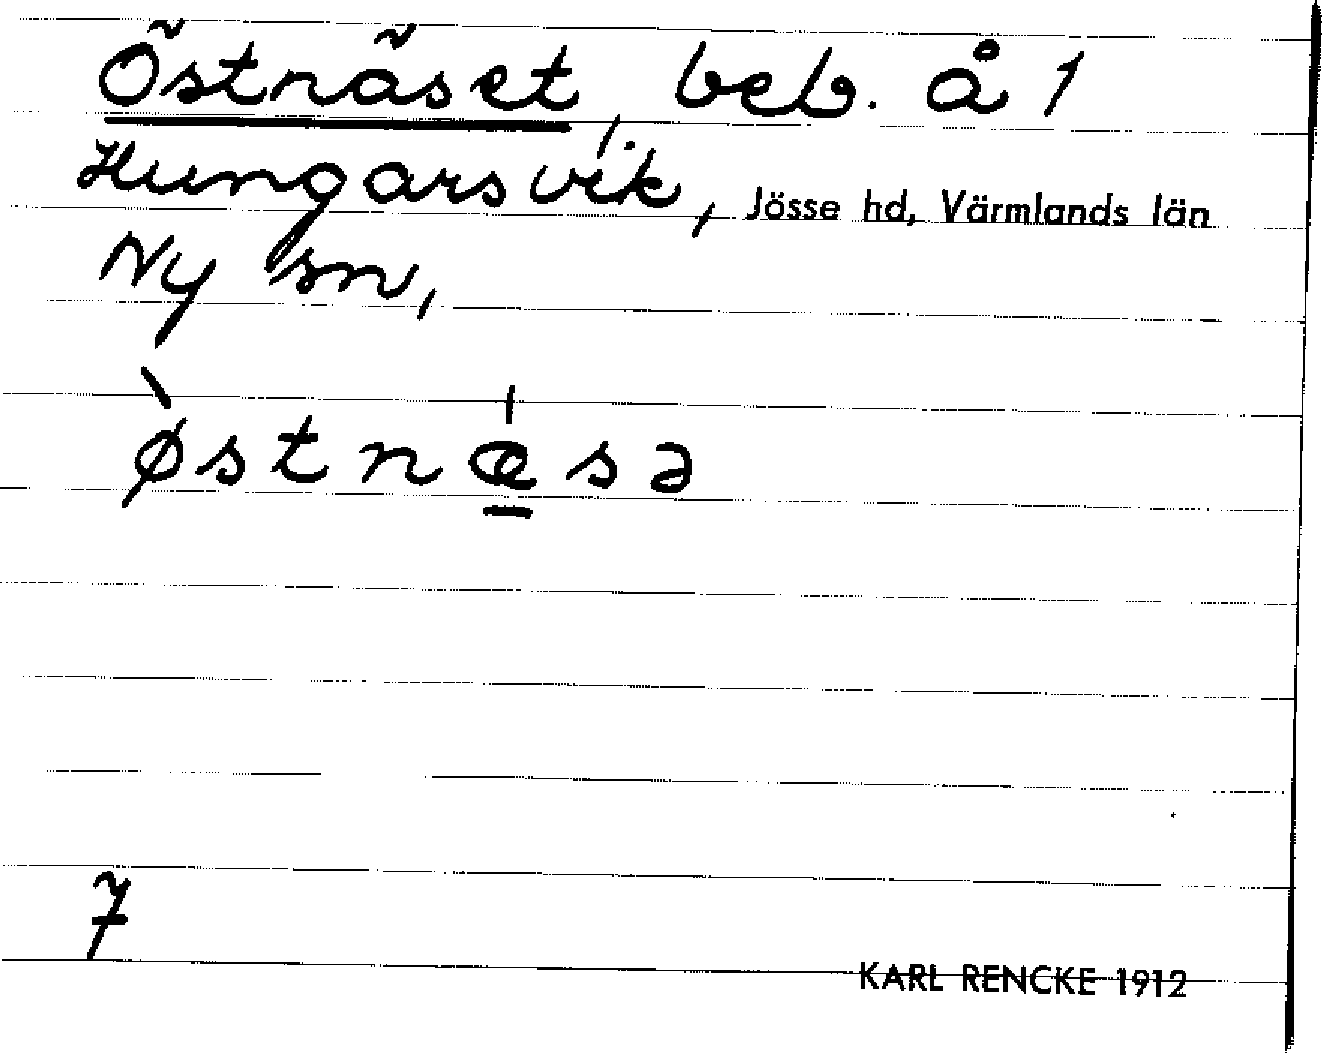 Östnäset, beb. å 1
Hungarsvik, Jösse hd, Värmlands län
Ny sn,
östnæsə
7
KARL RENCKE 1912